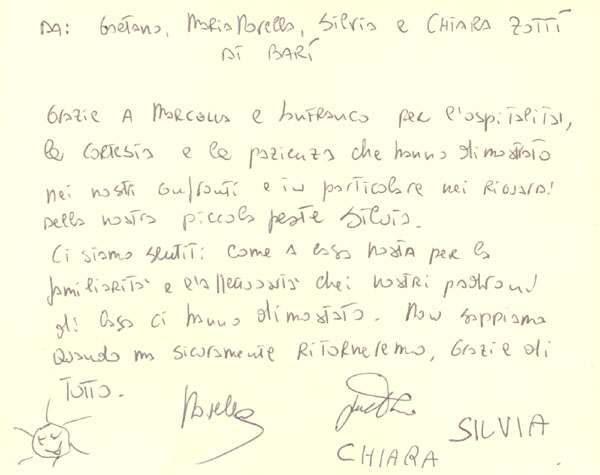 DA: Gaetano, Maria Novella, Silvia e CHIARA ZOTTI
DI BARI
Grazie A Marcella e Lanfranco per l'ospitalità,
la cortesia e la pazienza che hanno dimostrato
nei nostri confronti e in particolare nei Riguardi
della nostra piccola peste Silvia.
Ci siamo sentiti come a casa nostra per la
familiarità e l'allegria che i nostri padroni
di casa ci hanno dimostrato. Non sappiamo
Quando ma sicuramente Ritorneremo, Grazie di
TUTTO.
Novella
CHIARA
SILVIA